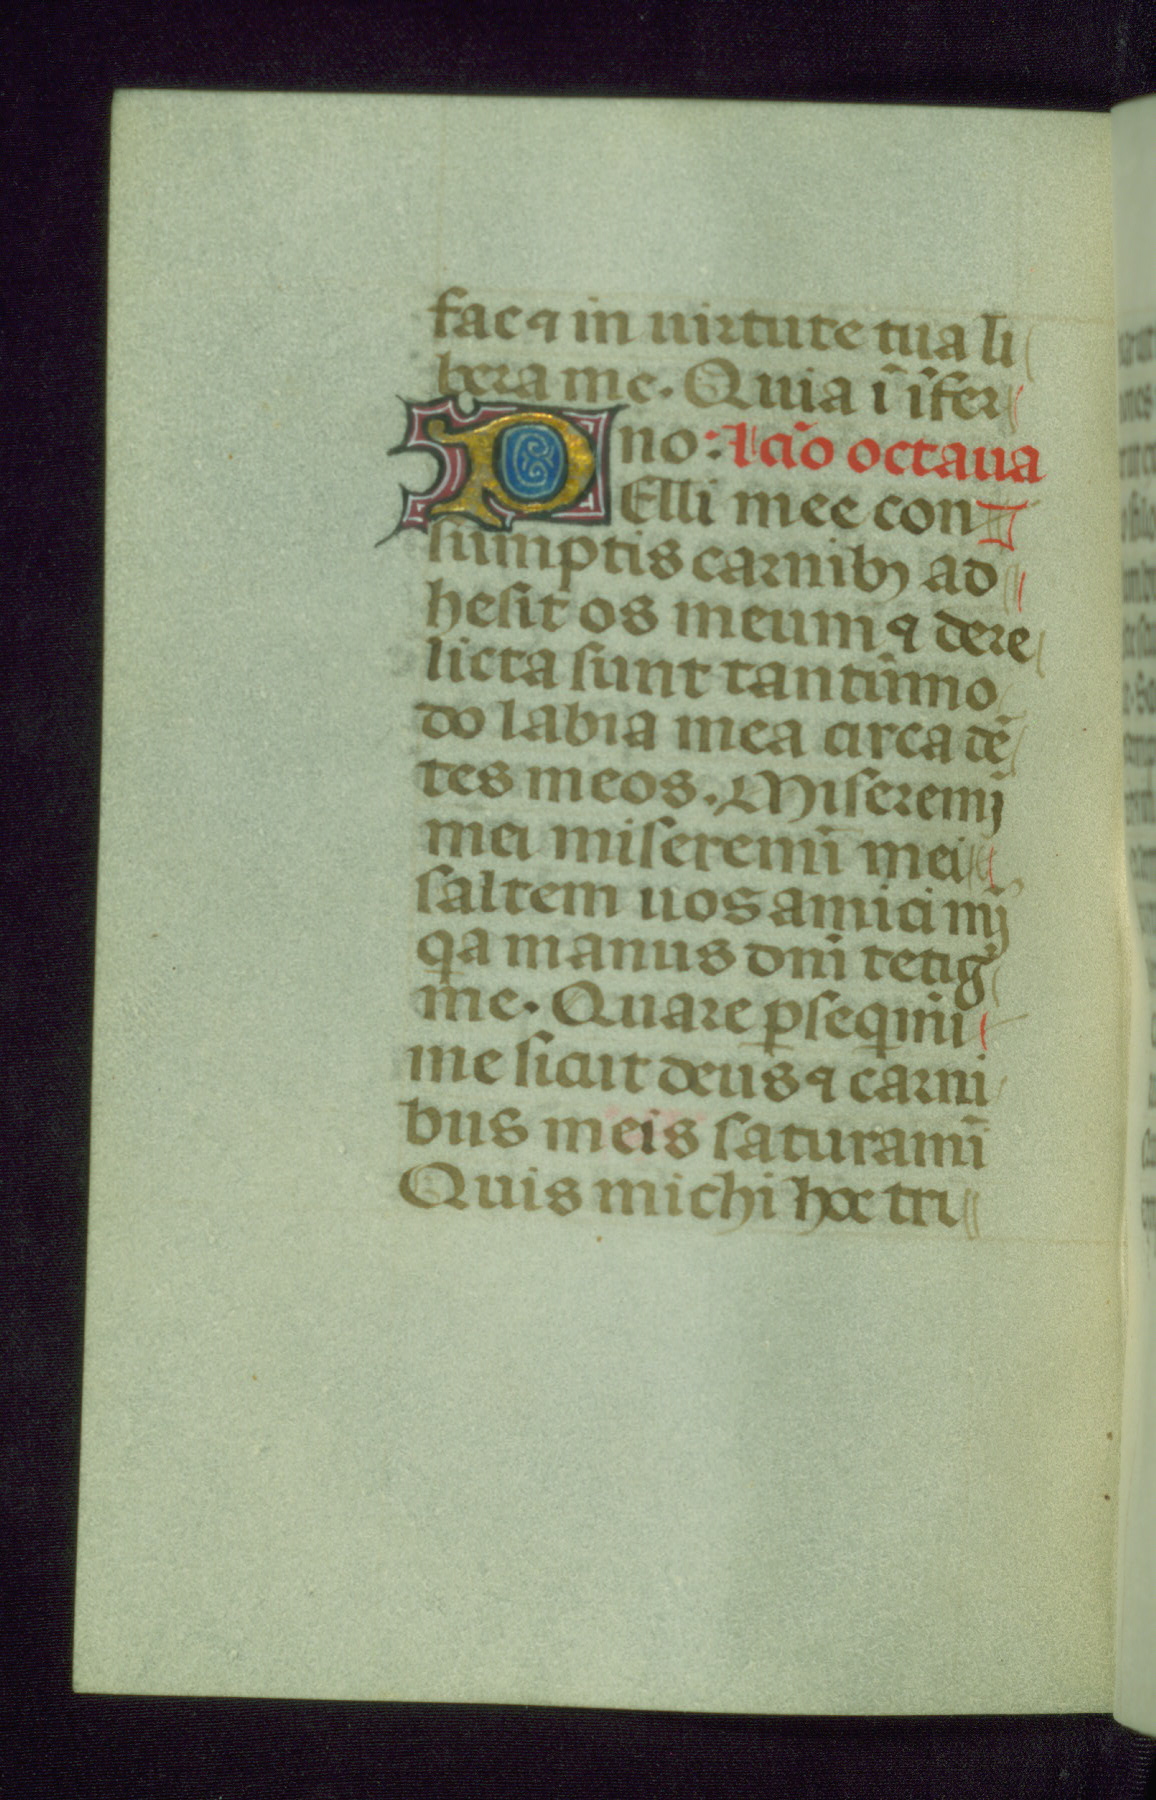 fac ⁊ in uirtute tua li
bera me. Quia ī īfer
no: lcĩo octaua
PElli mee con
sumptis carnibꝫ ad
hesit os meum ⁊ dere
licta sunt tantūmo
do labia mea circa dē
tes meos. Miseremĩ
mei miseremĩ mei
saltem uos amici mij
qa manus dnĩ tetigᷓ
me. Quare ꝑseqmĩ
me sicut deus ⁊ carni
bus meis saturamĩ
Quis michi hoc tri